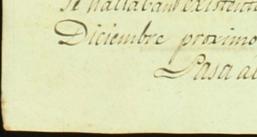 se hallaban existente
Diciembre proximo
Pasa a